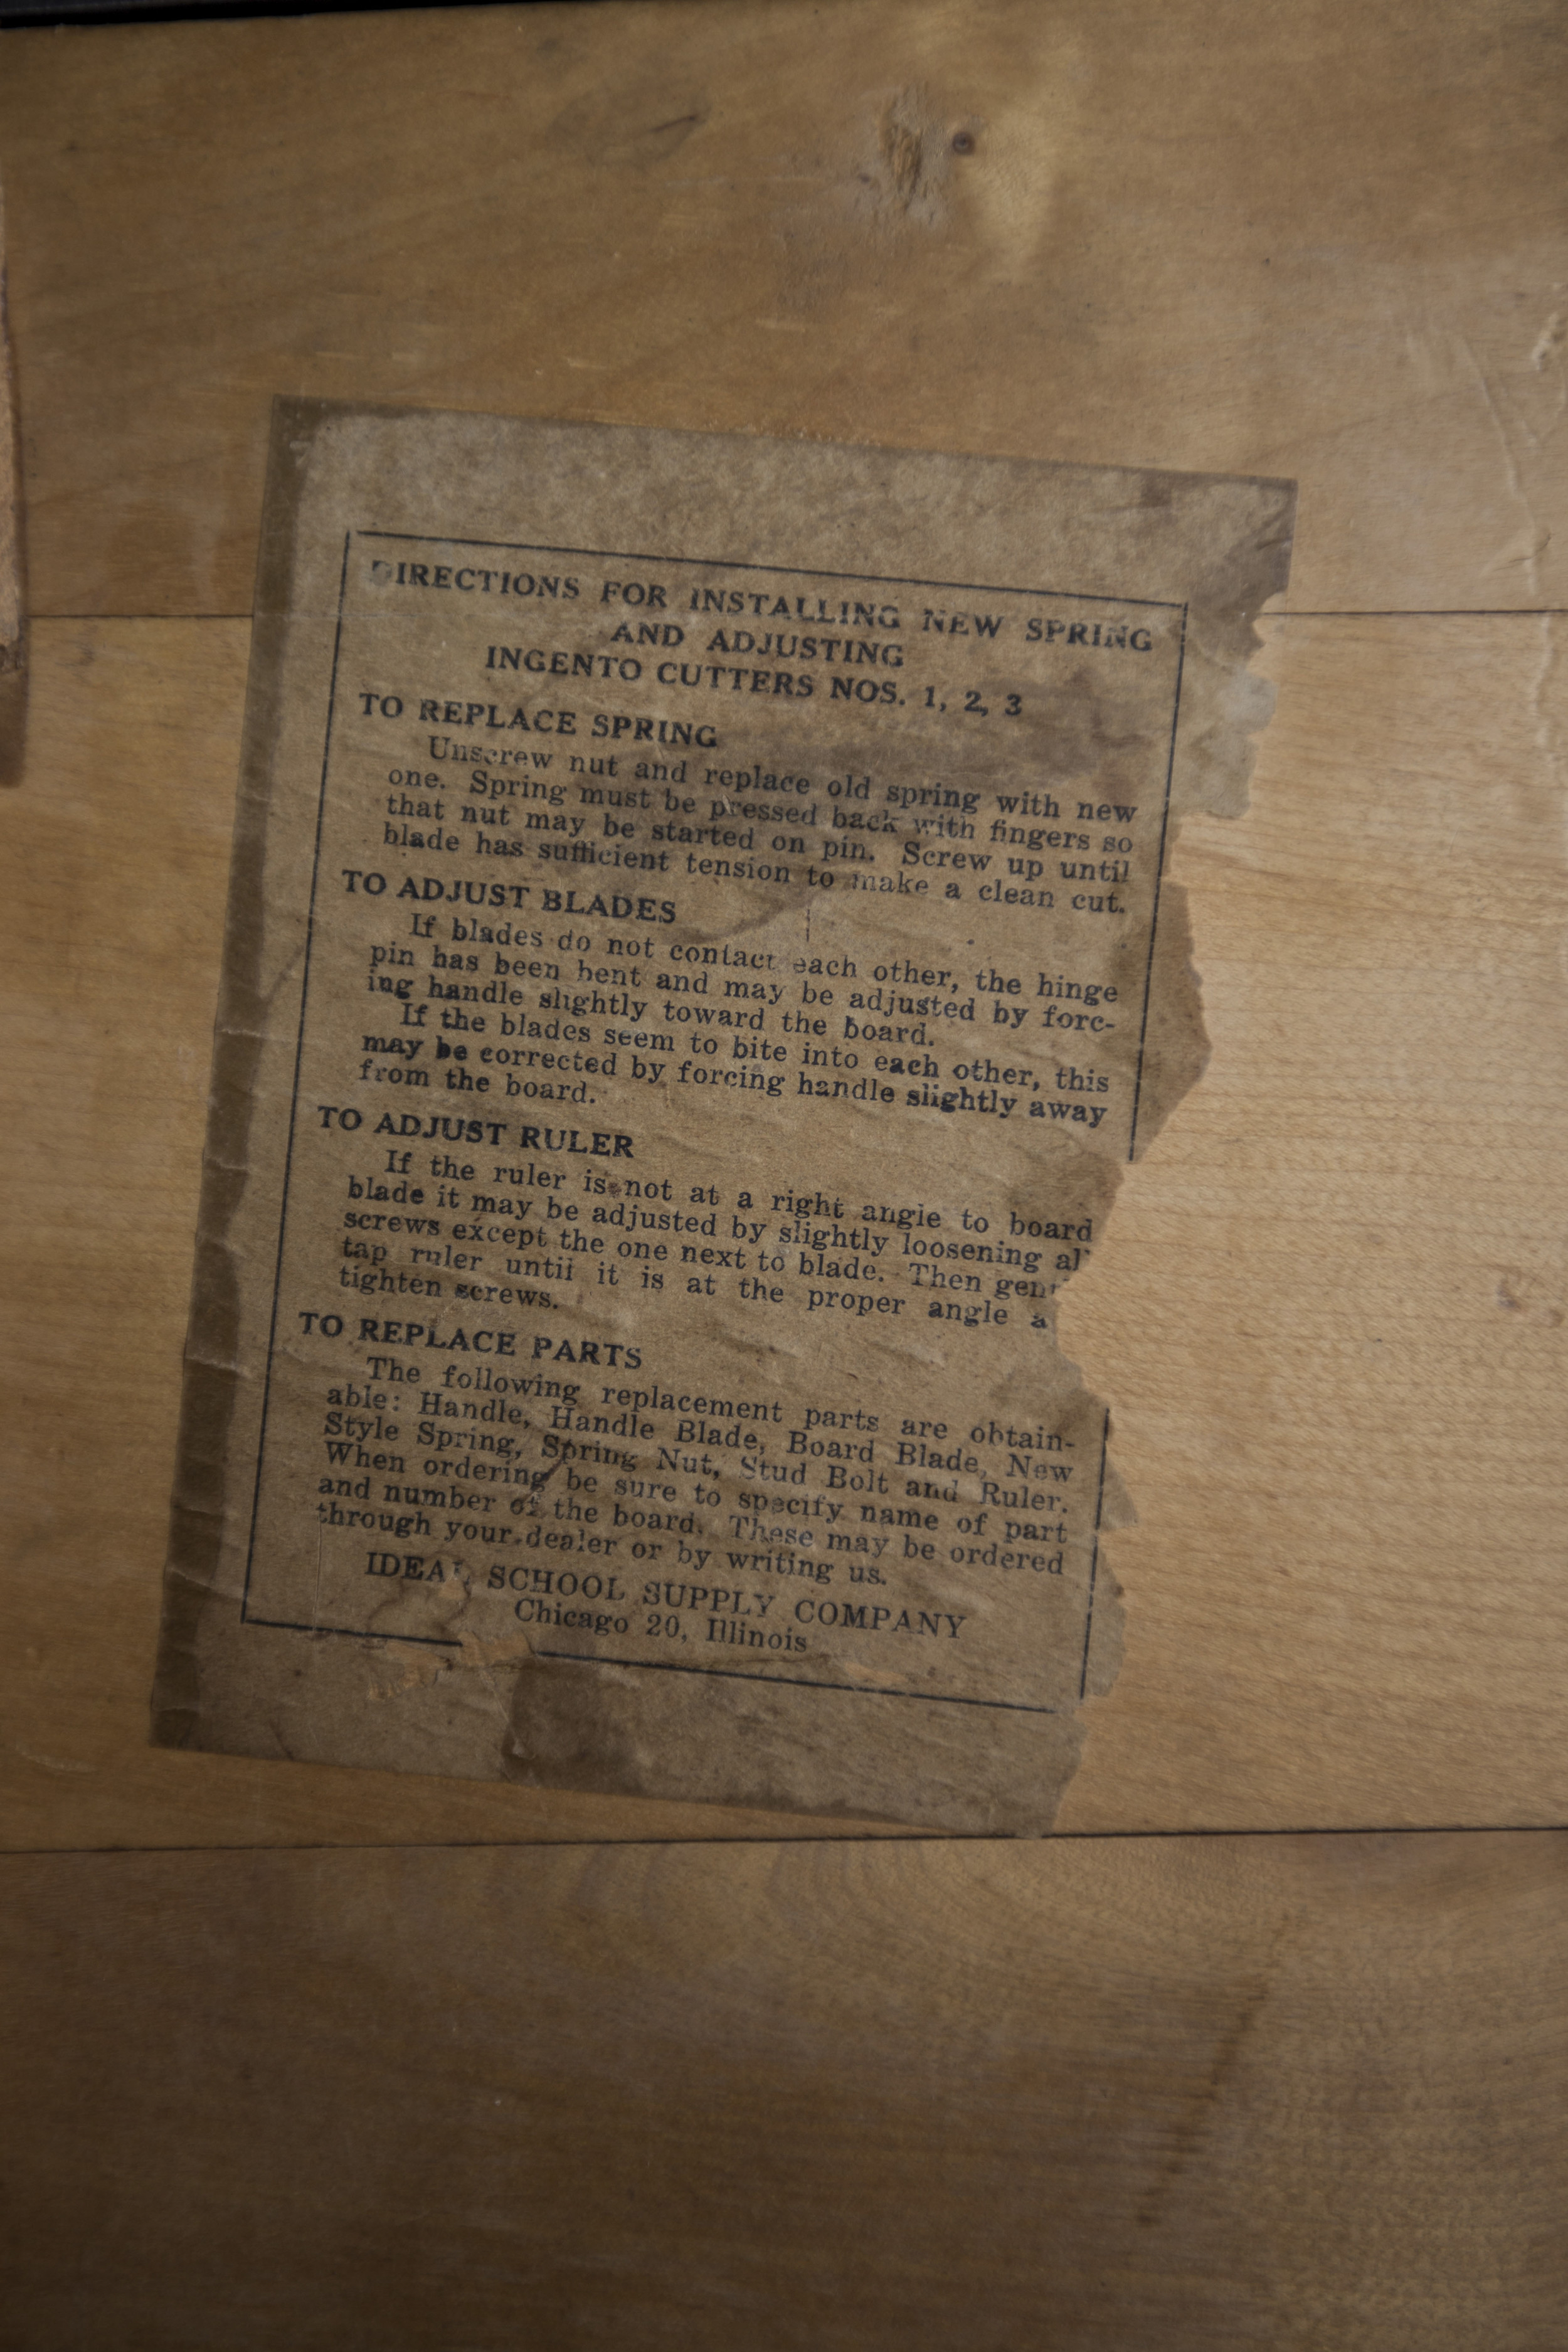 DIRECTIONS FOR INSTALLING NEW SPRING
AND ADJUSTING
INGENTO CUTTERS NOS. 1, 2, 3
TO REPLACE SPRING
Unscrew nut and replace old spring with new
one. Spring must be pressed back with fingers so
that nut may be started on pin. Screw up until
blade has sufficient tension to make a clean cut.
TO ADJUST BLADES
If blades do not contact each other, the hinge
pin has been bent and may be adjusted by forc-
ing handle slightly toward the board.
If the blades seem to bite into each other, this
may be corrected by forcing handle slightly away
from the board.
TO ADJUST RULER
If the ruler is not at a right angle to board
blade it may be adjusted by slightly loosening al
screws except the one next to blade. Then gen
tap ruler until it is at the proper angle a
tighten screws.
TO REPLACE PARTS
The following replacement parts are obtain-
able: Handle, Handle Blade, Board Blade, New
Style Spring, Spring Nut, Stud Bolt and Ruler.
When ordering be sure to specify name of part
and number of the board. These may be ordered
through your dealer or by writing us.
IDEAL SCHOOL SUPPLY COMPANY
Chicago 20, Illinois